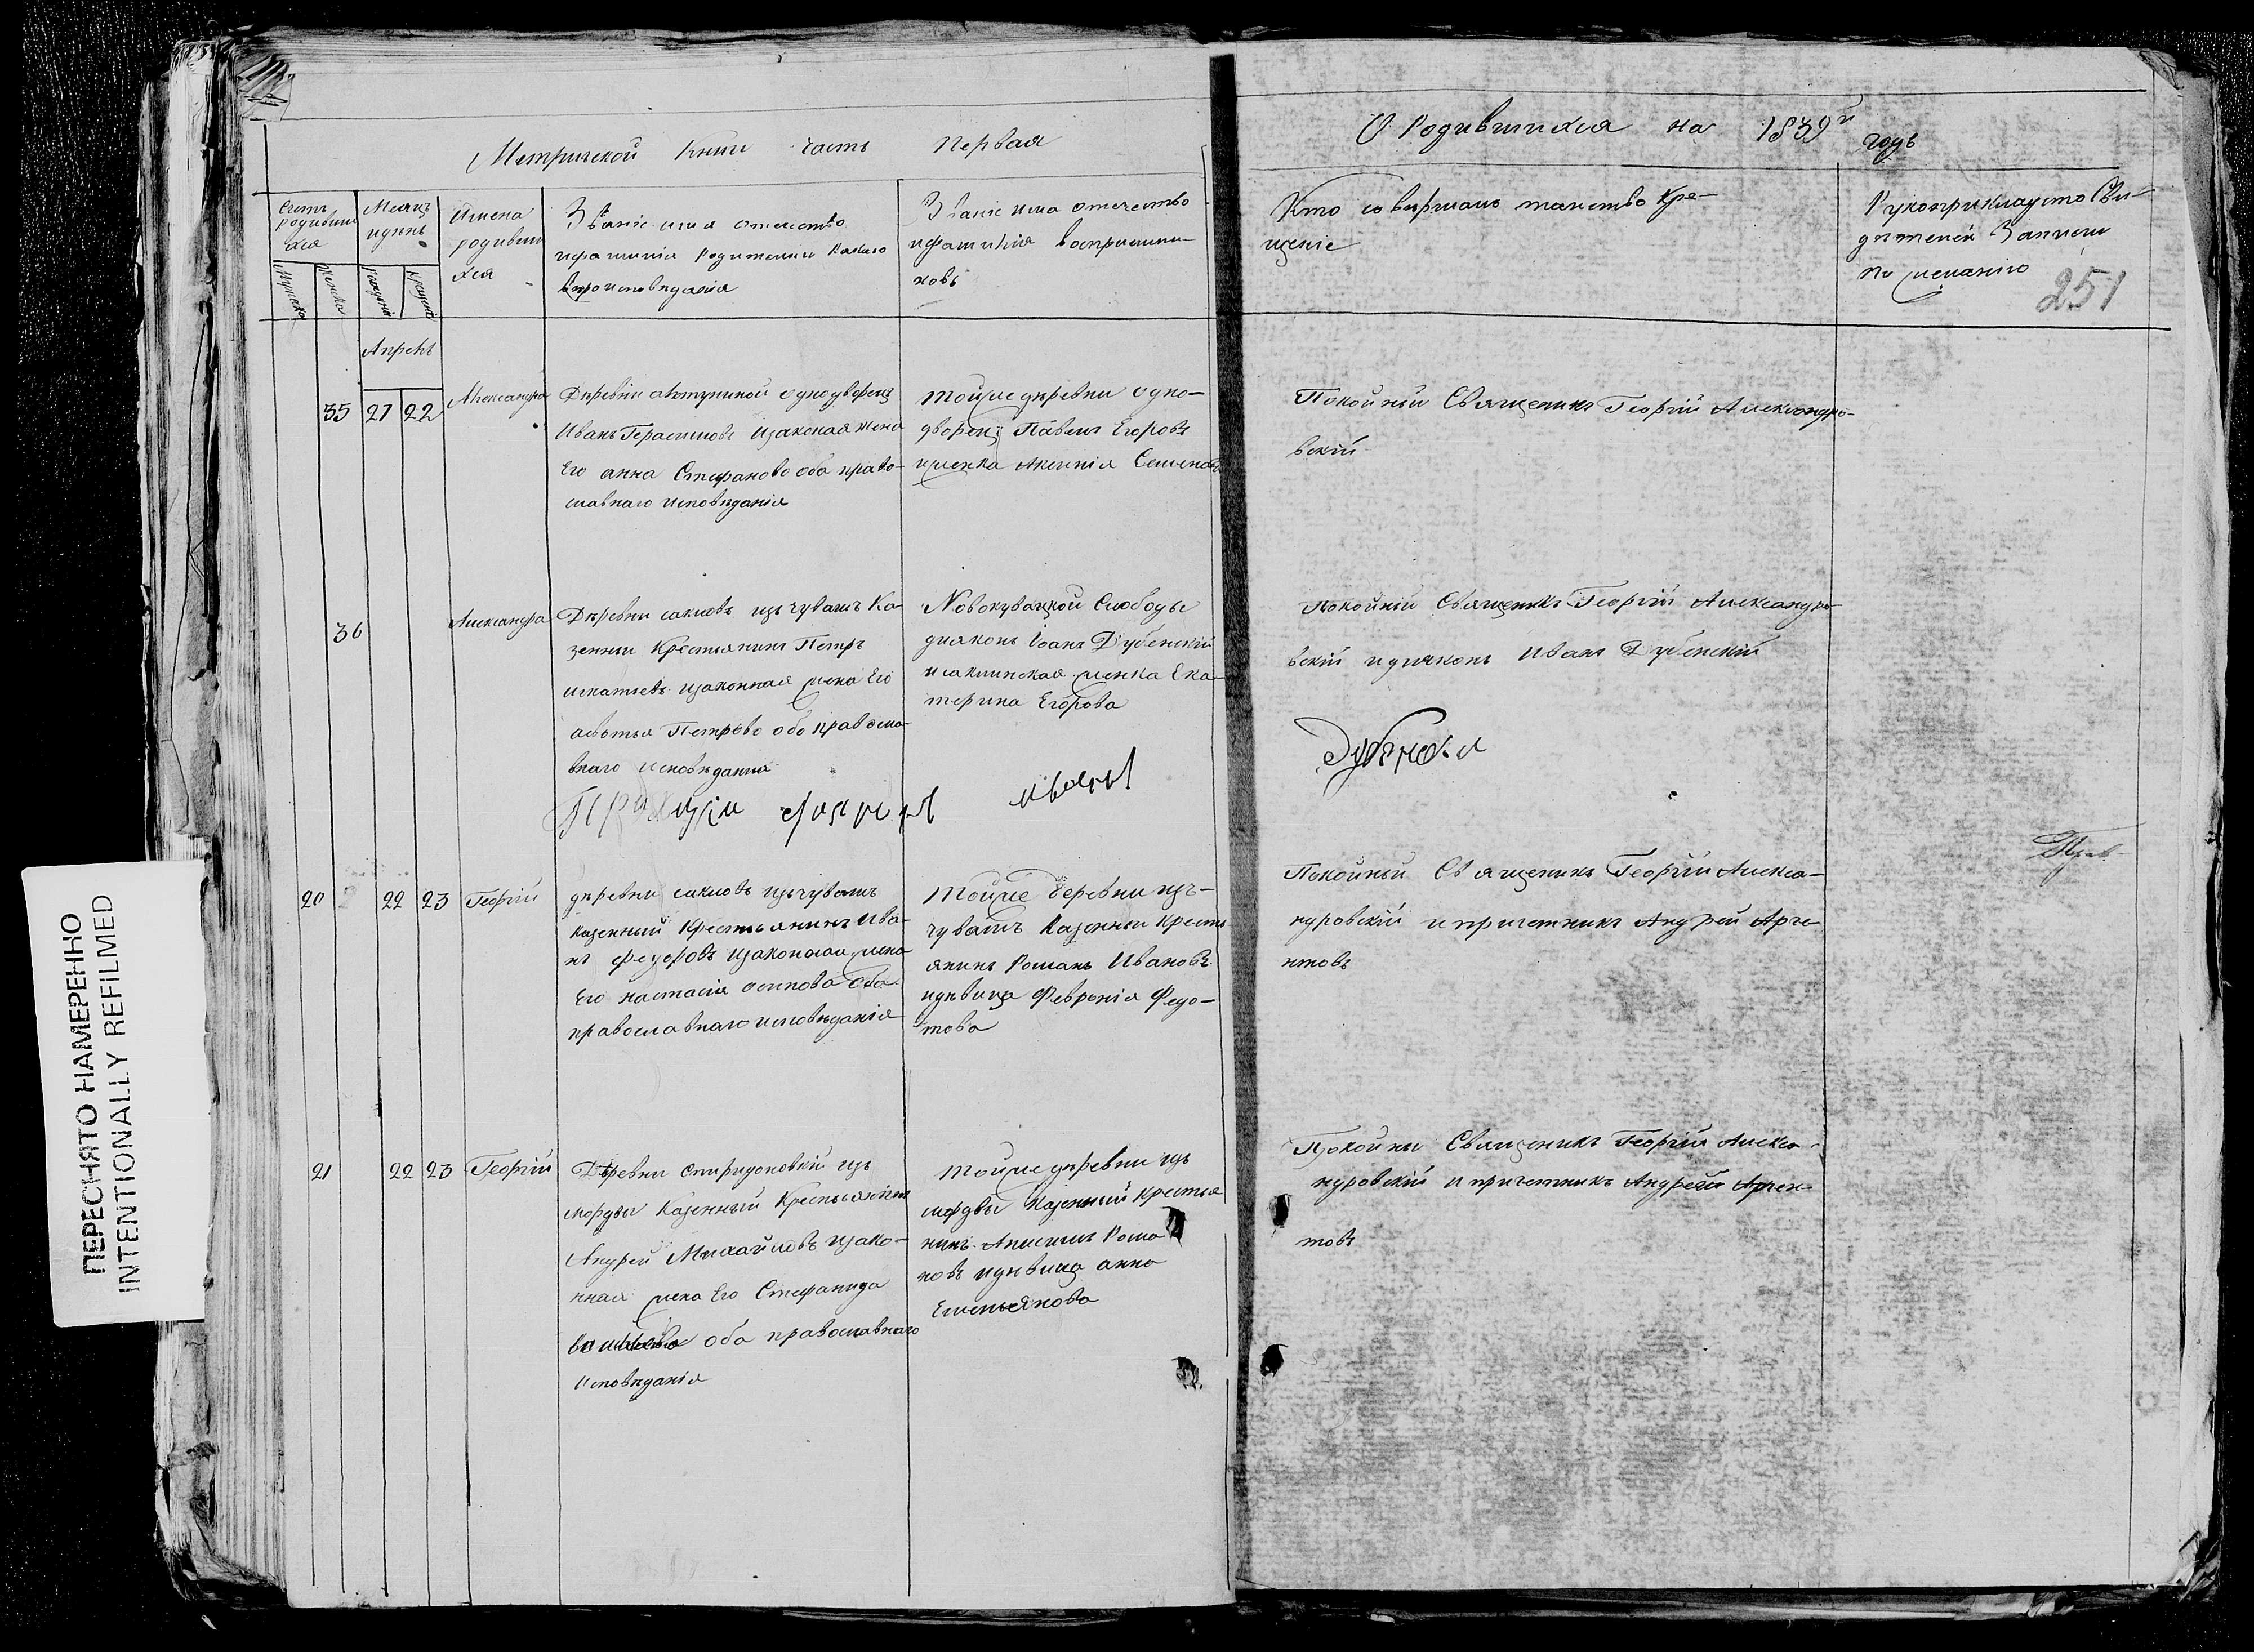 Метрической книги часть первая
О Родившихся на 1839й годъ
Счетъ родившихся
Месяцъ и день
Имена
родивши
хся
Званіе имя отечество
и фамилія Родителей какаго
вероисповеданія
Званіе имя отечество
и фамилія восприемни-
ковъ
Кто совершалъ таинство кре-
щеніе
Рукоприкладство Сви-
детелей Записи
по желанію
251
Мужска
женска
рожденія
крещенія
Апрель
35 21 22 Александра
Деревни однодворецъ
Иванъ Герасимовъ и законая жена
Его анна Стефанова оба право-
славнаго исповеданія
Тойже деревни одно-
дворецъ Павелъ Егоровъ
и женка Аксинія Семенова
Покойный Священикъ Георгій Александро-
вскій
36
Александра
Деревни сакловъ изъ чувашъ Ка
зенный Крестьянинъ Петръ
игнатьевъ и законная жена Его
Петрова оба правосла-
внаго исповеданія
Новокувацкой Слободы
диаконъ Іоанъ Дубенскій
и саклинская женка Ека-
терина Егорова
Покойній Священикъ Георгій Александро-
вскій и диаконъ Иванъ Дубенскій
20 22 23 Георгій
деревни сакловъ изъ чувашъ
казенный Крестьянинъ Ива-
нъ федоровъ и законная жена
Его настасія осипова оба
православнаго исповеданія
Тойже деревни изъ-
чувашъ Казенный Кресть
янинъ Романъ Ивановъ
и девица Февронія Федо-
това
Покойный Священикъ Георгій Алекса-
ндровскій и причетникъ Андрей Арге-
нтовъ
21 22 23 Георгій
Деревни спиридоновкій изъ
мордвы Казенный Крестьянинъ
Андрей Михайловъ и зако-
нная жена Его Стефанида
оба православнаго
исповеданія
Тойже деревни изъ
мордвы Казенный крестья
нинъ Анисимъ Рома
новъ и девица анна
Емельянова
Покойны Священикъ Георгій Алекса-
ндровскій и причетникъ Андрей Арген-
товъ
ПЕРЕСНЯТО НАМЕРЕННО
INTENTIONALLY REFILMED